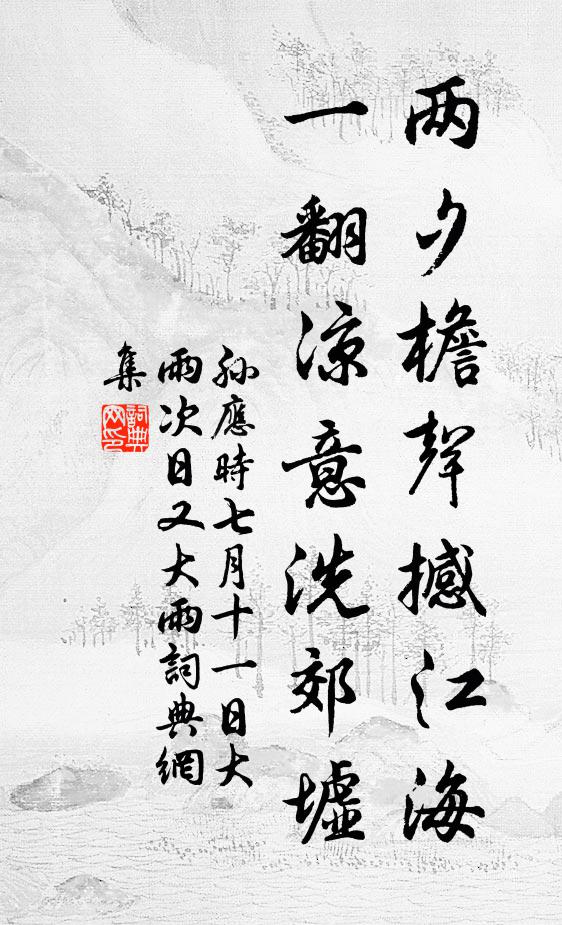 两夕檐聲撼江海
一翻凉意洗郊墟
孙應時七月十一日大
雨次日又大雨詞典網
集
詞典
网印